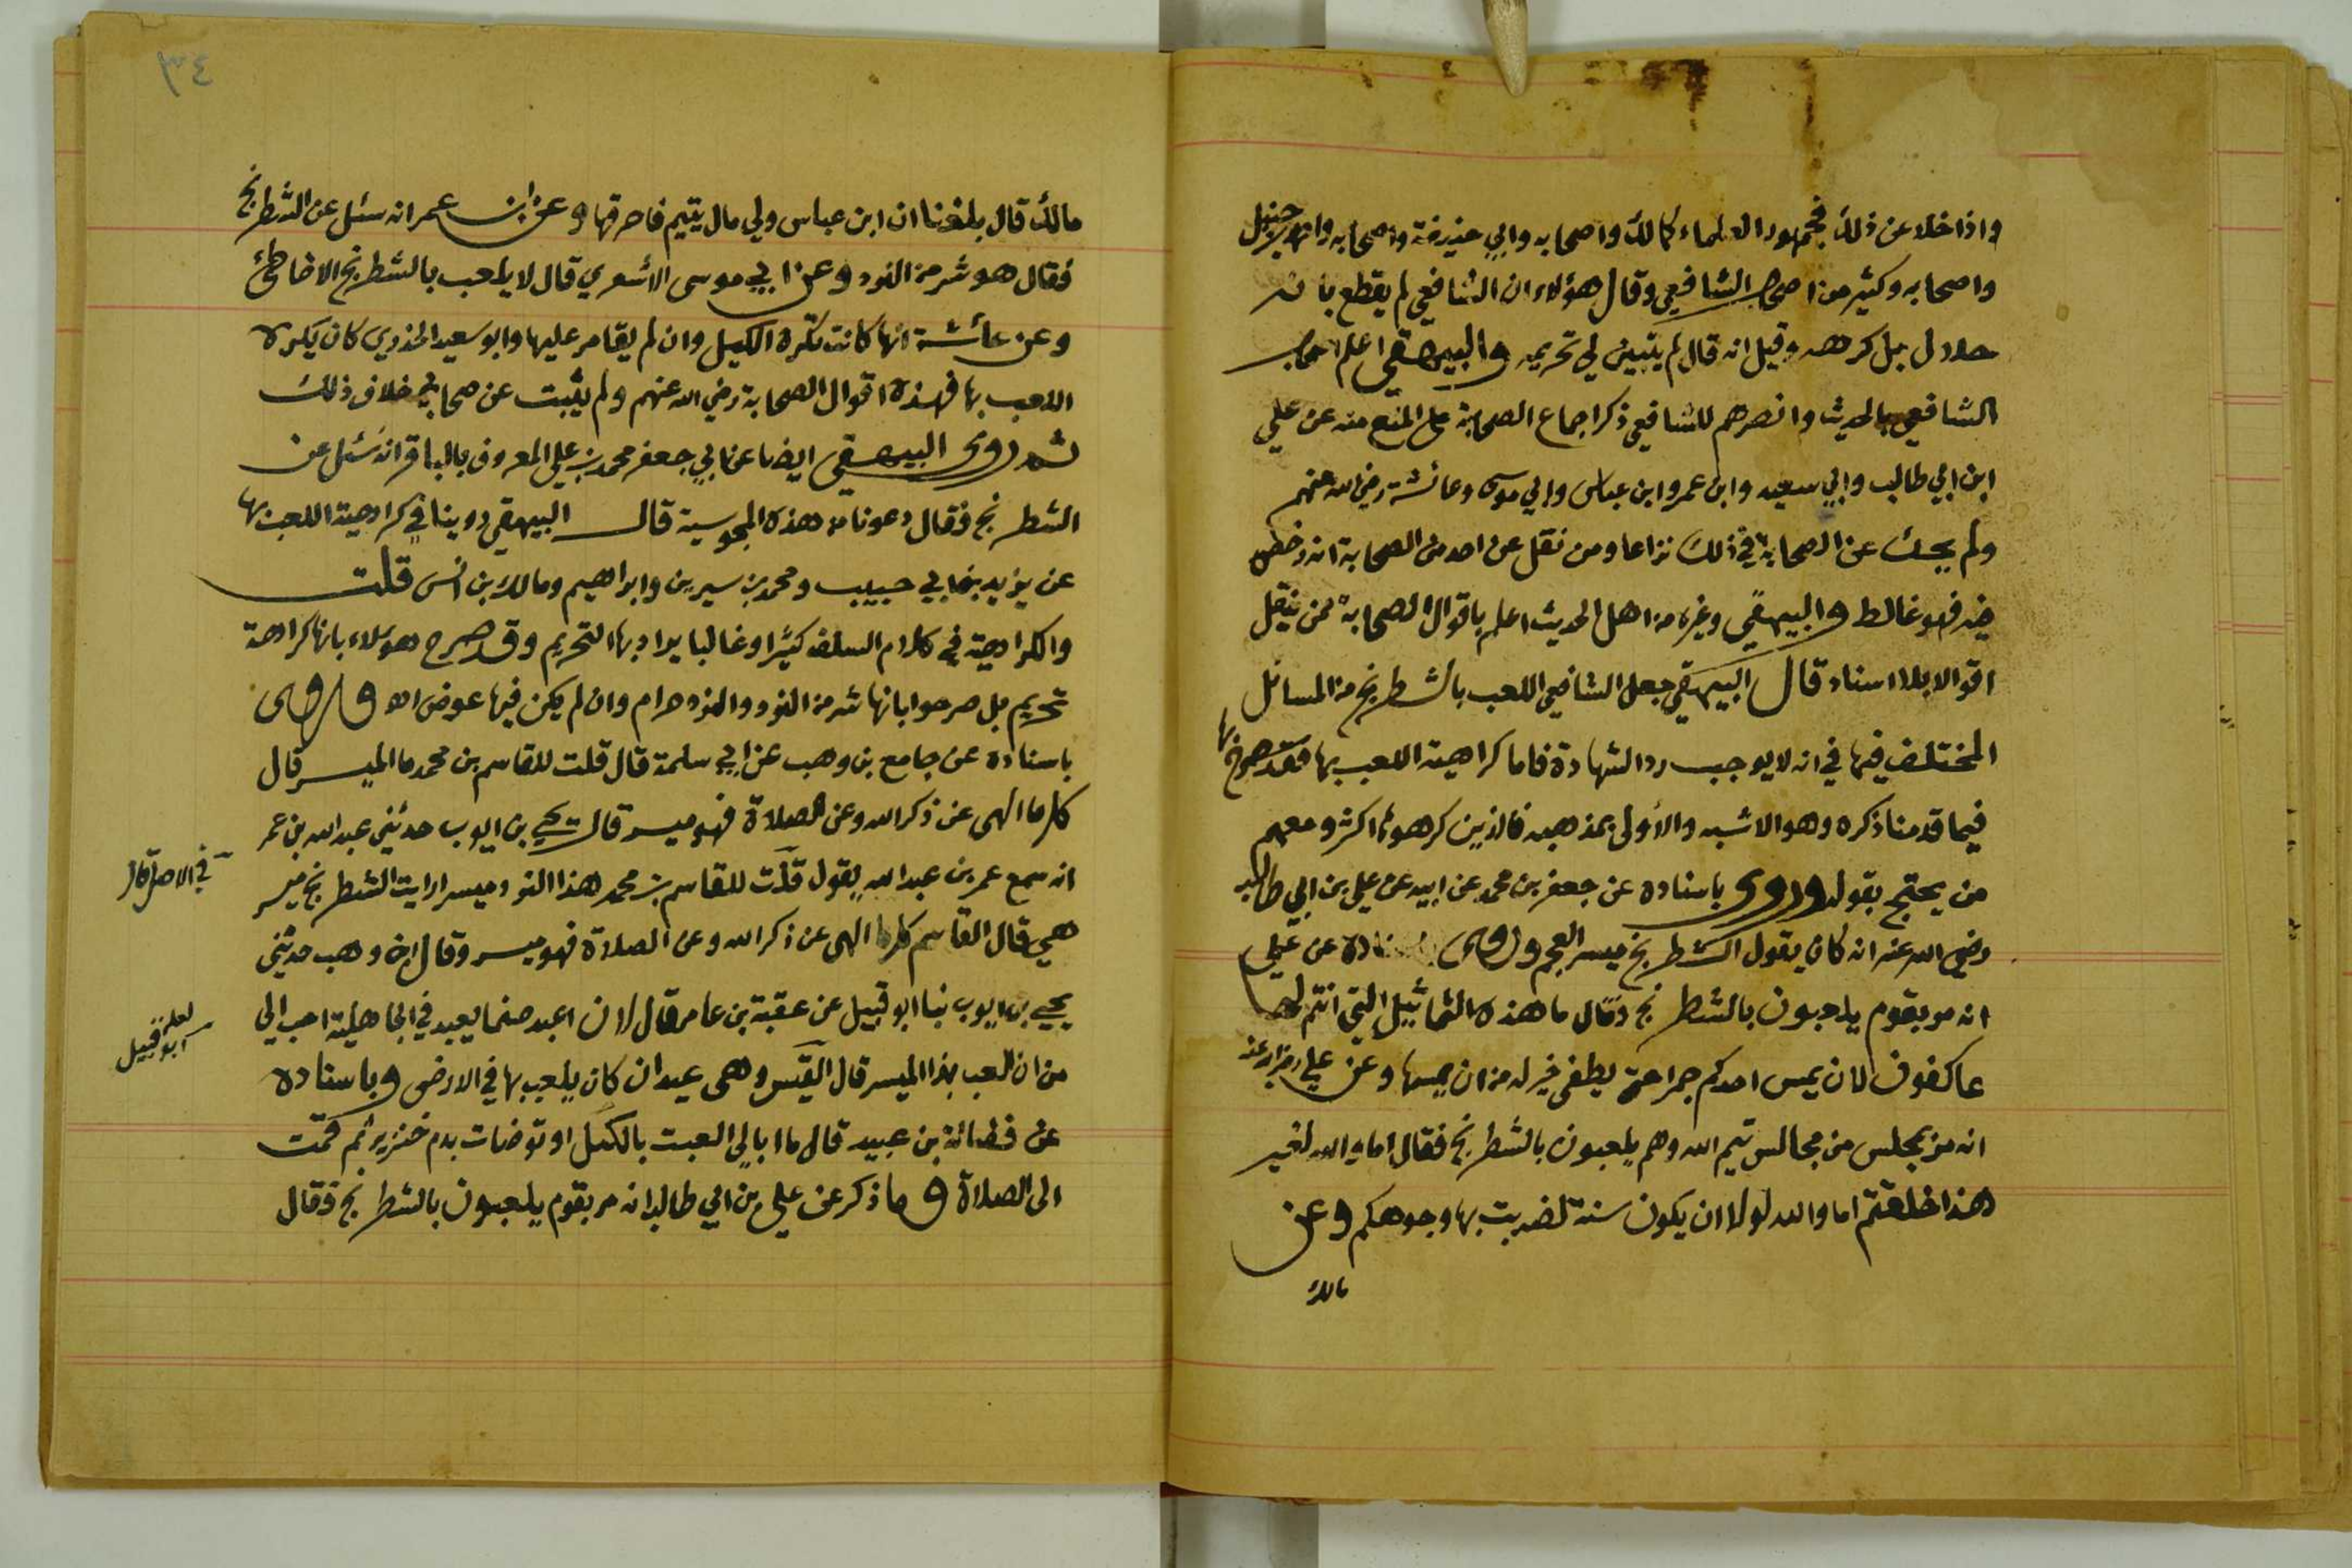 واذا خلا عن ذلك فجمهور العلماء كمالك واصحابه وابي حنيفة واصحابه واحمد بن حنبل
واصحابه وكثير من اصحاب الشافعي وقال هؤلاء ان الشافعي لم يقطع بانه
حلال بل كرهه وقيل انه قال لم يتبين لي تحريمه والبيهقي اعلم اصحاب
الشافعي بالحديث وانصرهم للشافعي ذكر اجماع الصحابة على المنع منه عن علي
ابن ابي طالب وابي سعيد وابن عمر وابن عباس وابي موسى وعائشة رضي الله عنهم
ولم يحك عن الصحابة في ذلك نزاعا ومن نقل عن احد من الصحابة انه رخص
فيه فهو غالط والبيهقي وغيره من اهل الحديث اعلم باقوال الصحابة ممن ينقل
اقوالا بلا اسناد قال البيهقي جعل الشافعي اللعب بالشطرنج من المسائل
المختلف فيها في انه لا يوجب رد الشهادة فاما كراهية اللعب بها فقد صرح بها
فيما قدمنا ذكره وهو الاشبه والأولى بمذهبه فالذين كرهوها اكثر ومعهم
من يحتج بقوله وروى باسناده عن جعفر بن محمد عن ابيه عن علي بن ابي طالب
رضي الله عنه انه كان يقول الشطرنج ميسر العجم وروى باسناده عن علي
انه مر بقوم يلعبون بالشطرنج وقال ما هذه التماثيل التي انتم لها
عاكفون لان يمس احدكم جمرا حتى يطفى خير له من ان يمسها وعن علي رضي الله عنه
انه مر بمجلس من مجالس تيم الله وهم يلعبون بالشطرنج فقال اما والله لغير
هذا خلقتم اما والله لولا ان يكون سنة لضربت بها وجوهكم وعن
مالك
٤٣
مالك قال بلغنا ان ابن عباس ولي مال يتيم فاحرقها وعن ابن عمر انه سئل عن الشطرنج
فقال هو شر من النرد وعن ابي موسى الاشعري قال لا يلعب بالشطرنج الا خاطئ
وعن عائشة انها كانت تكره الكيل وان لم يقامر عليها وابو سعيد الخدري كان يكره
اللعب بها فهذه اقوال الصحابة رضي الله عنهم ولم يثبت عن صحابي خلاف ذلك
ثم روى البيهقي ايضا عن ابي جعفر محمد بن علي المعروف بالباقر انه سئل عن
الشطرنج فقال دعونا من هذه المجوسية قال البيهقي روينا في كراهية اللعب بها
عن يزيد بن ابي حبيب ومحمد بن سيرين وابراهيم ومالك بن انس قلت
والكراهية في كلام السلف كثيرا وغالبا يراد بها التحريم وقد صرح هؤلاء بانها كراهة
تحريم بل صرحوا بانها شر من النرد والنرد حرام وان لم يكن فيها عوض اه وروى
باسناده عن جامع بن وهب عن ابي سلمة قال قلت للقاسم بن محمد ما الميسر قال
كلما الهى عن ذكر الله وعن الصلاة فهو ميسر قال يحيى بن ايوب حدثني عبد الله بن عمر
انه سمع عمر بن عبد الله يقول قلت للقاسم بن محمد هذا النرد ميسر ارايت الشطرنج ميسر
هي قال القاسم كلما الهى عن ذكر الله وعن الصلاة فهو ميسر وقال ابن وهب حدثني
يحيى بن ايوب ثنا ابو قبيل عن عقبة بن عامر قال لان اعبد صنما يعبد في الجاهلية احب الي
من ان العب بهذا الميسر قال القيس وهي عيدان كان يلعب بها في الارض وباسناده
عن فضالة بن عبيد قال ما ابالي العبت بالكيل او توضات بدم خنزير ثم قمت
الى الصلاة وما ذكر عن علي بن ابي طالب انه مر بقوم يلعبون بالشطرنج فقال
في الاصل قال
لعله
ابو قبيل